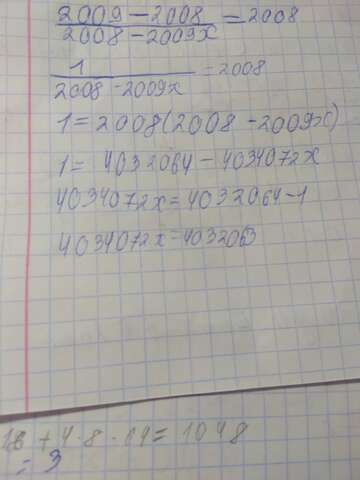 2009-2008
2008-2009x
=2008
1
2008-2009x
=2008
1=2008(2008-2009x)
1=4032064-4034072x
4034072x=4032064-1
4034072x=4032063
+4·8·64=1048
=3